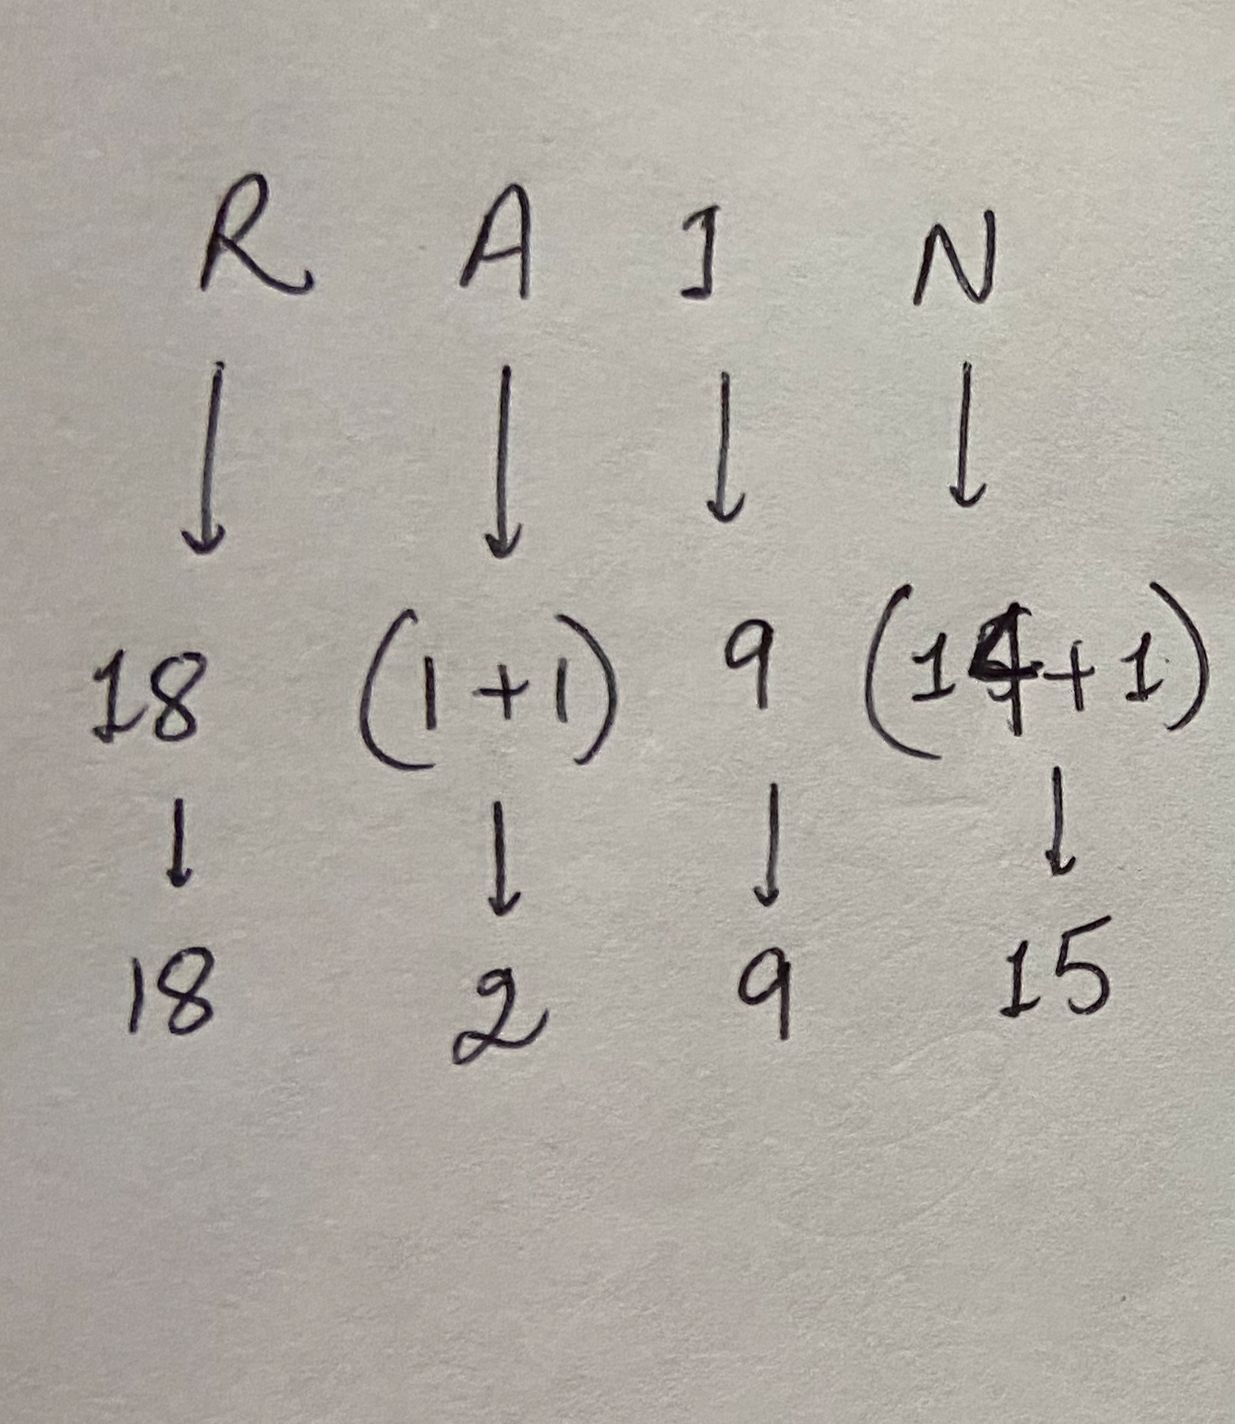 R A I N
18 (1+1) 9 (14+1)
18 2 9 15